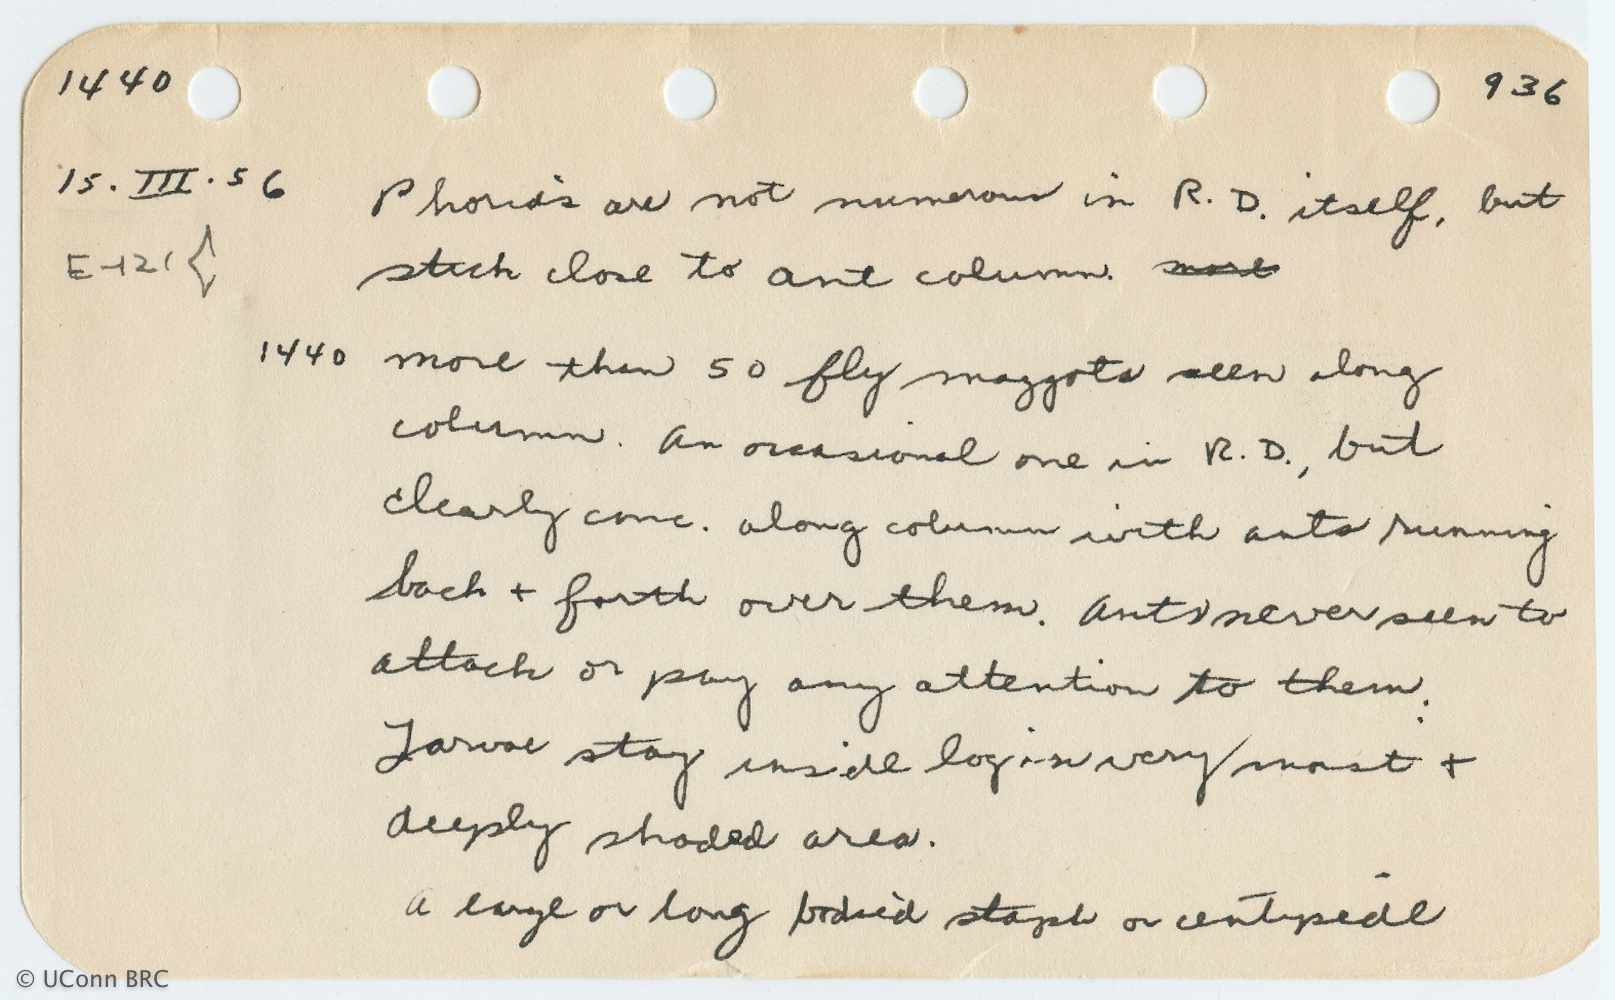 1440 936
15.III.56 Phorids are not numerous in R.D. itself, but
E-121 stick close to ant column. more
1440 more than 50 fly maggots seen along
column. An occasional one in R.D., but
clearly conc. along column with ants running
back + forth over them. Ants never seen to
attack or pay any attention to them.
Larvae stay inside log in very moist +
deeply shaded area.
A large or long bodied staph or centipede
© UConn BRC